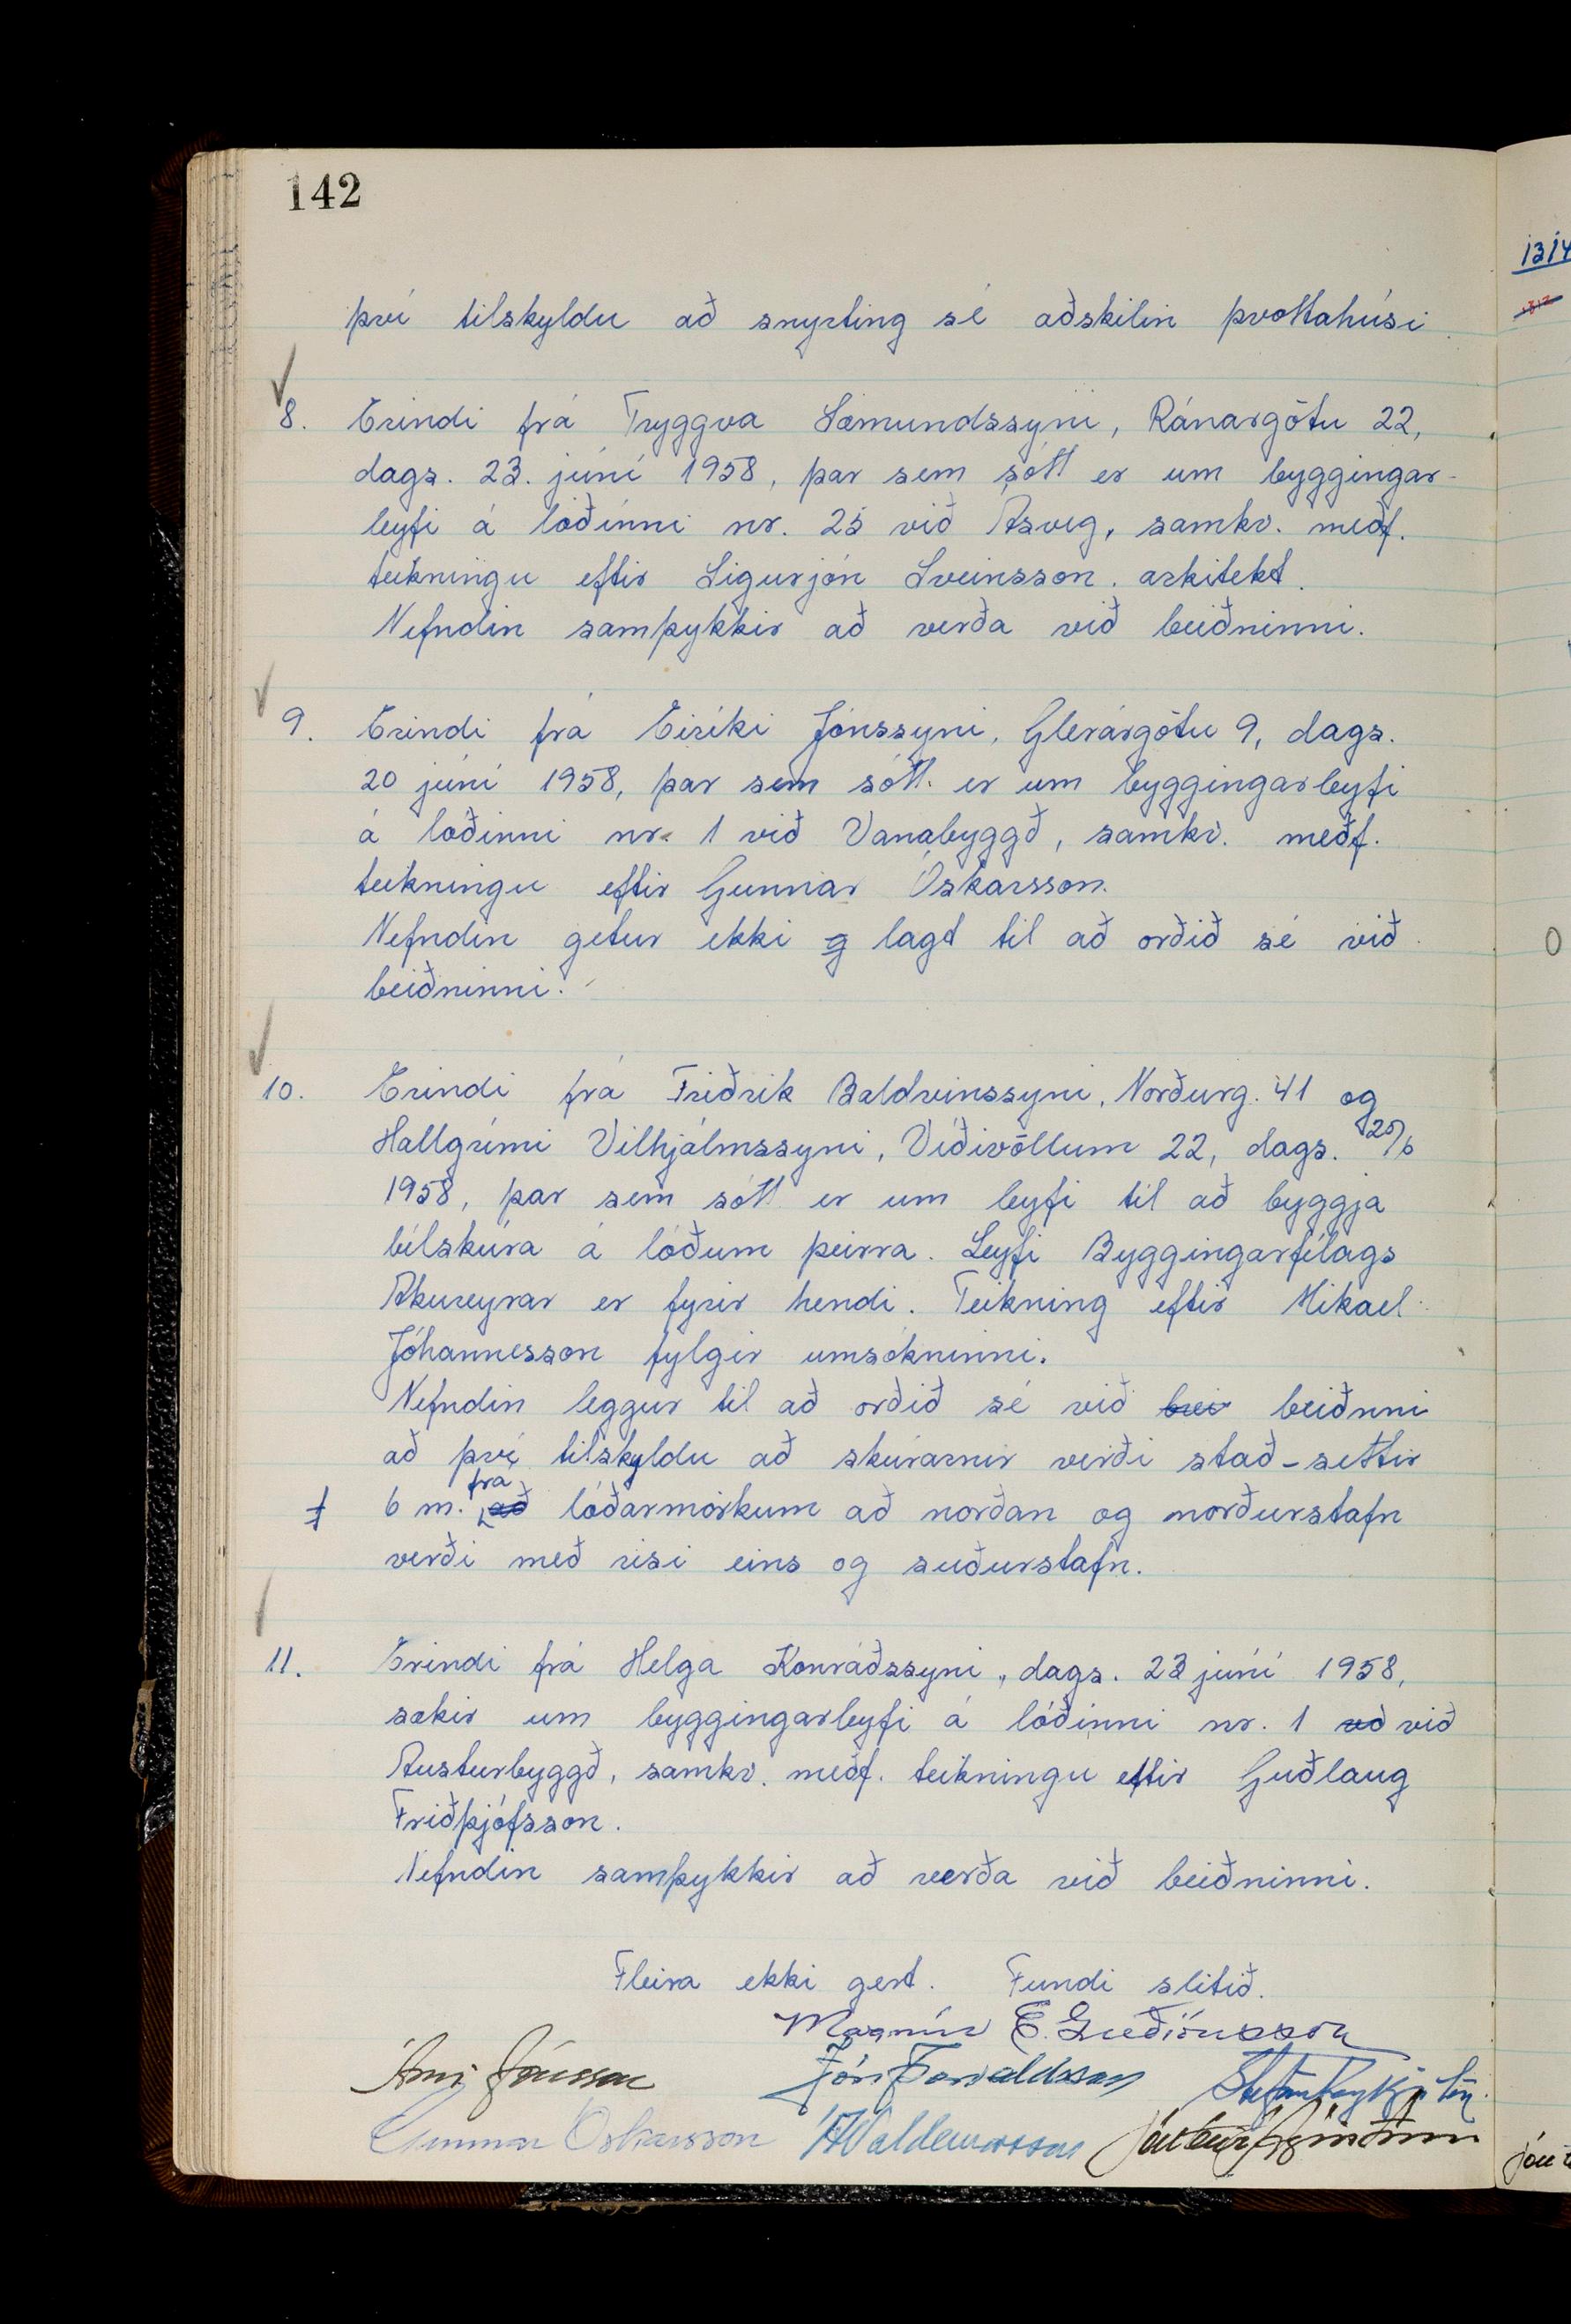 142
því tilskyldu að snyrting sé aðskilin þvottahúsi
8. Erindi frá Tryggva Sæmundssyni, Ránargötu 22,
dags. 23. júní 1958, þar sem sótt er um byggingar-
leyfi á lóðinni nr. 25 við Ásveg, samkv. meðf.
teikningu eftir Sigurjón Sveinsson. arkitekt.
Nefndin samþykkir að verða við beiðninni.
9. Erindi frá Eiríki Jónssyni, Glerárgötu 9, dags.
20 júní 1958, þar sem sótt er um byggingarleyfi
á lóðinni nr. 1 við Vanabyggð, samkv. meðf.
teikningu eftir Gunnar Óskarsson.
Nefndin getur ekki g lagt til að orðið sé við
beiðninni.
10. Erindi frá Friðrik Baldvinssyni, Norðurg. 41 og
Hallgrími Vilhjálmssyni, Víðivöllum 22, dags. 25/6
1958, þar sem sótt er um leyfi til að byggja
bílskúra á lóðum þeirra. Leyfi Byggingarfélags
Akureyrar er fyrir hendi. Teikning eftir Mikael
Jóhannesson fylgir umsókninni.
Nefndin leggur til að orðið sé við bei beiðnni
að því tilskyldu að skúrarnir verði stað-settir
6 m. frá að lóðarmörkum að norðan og norðurstafn
verði með risi eins og suðurstafn.
11. Erindi frá Helga Konráðssyni, dags. 23 júní 1958,
sækir um byggingarleyfi á lóðinni nr. 1 við
Austurbyggð, samkv. meðf. teikningu eftir Guðlaug
Friðþjófsson.
Nefndin samþykkir að verða við beiðninni.
Fleira ekki gert. Fundi slitið.
Magnús E. Guðjónsson
Árni Jónsson Jón Þorvaldsson Stefán Reykjalín
Gunnar Óskarsson
1314